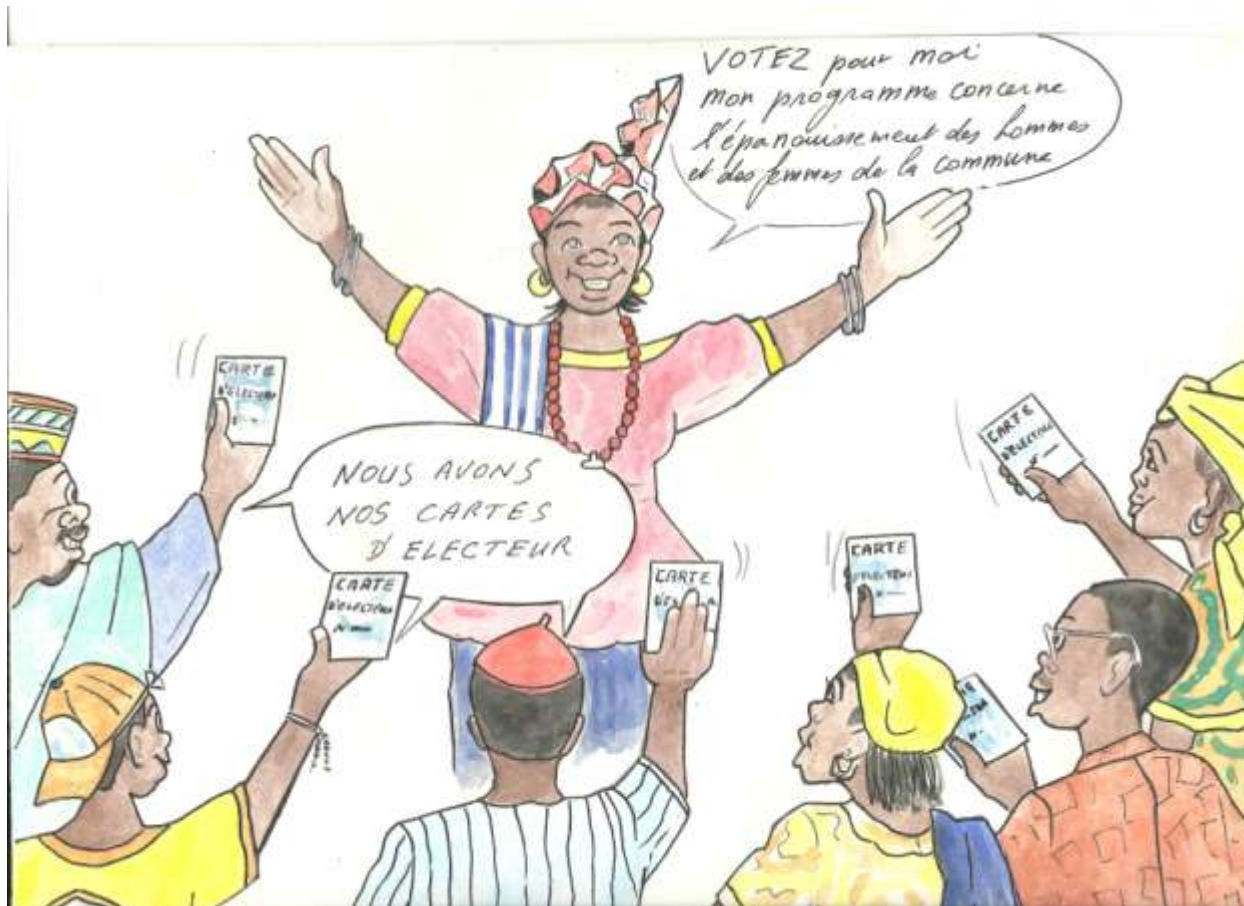 VOTEZ pour moi
mon programme concerne
l'épanouissement des hommes
et des femmes de la commune
NOUS AVONS
NOS CARTES
D'ELECTEUR
CARTE
D'ELECTEUR
CARTE
D'ELECTEUR
N°
CARTE
D'ELECTEUR
CARTE
CARTE
D'ELECTEUR
N°